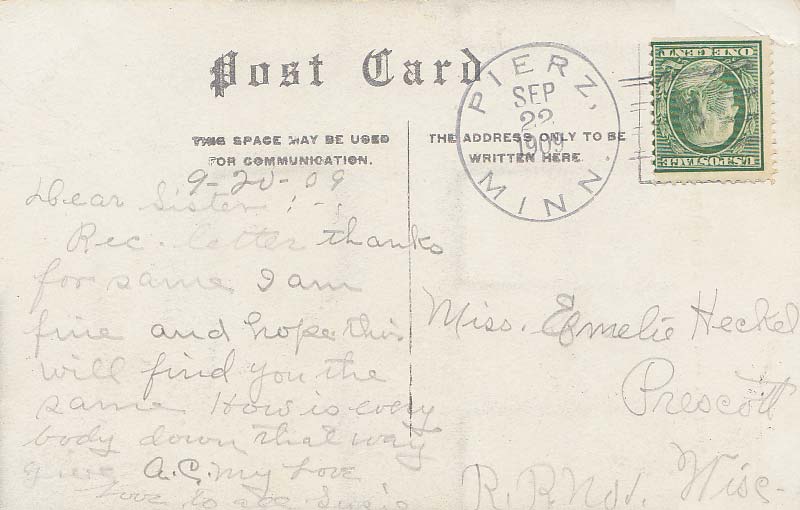 Post Card
THIS SPACE MAY BE USED
FOR COMMUNICATION.
9-20-09
Dear Sister:-
Rec. letter thanks
for same I am
fine and hope this
will find you the
same How is every
body down that way
give A.C. my Love
Love to all Susie
THE ADDRESS ONLY TO BE
WRITTEN HERE.
PIERZ, MINN.
SEP
22
1909
U.S. POSTAGE
ONE CENT
Miss. Emelie Heckel
Prescott
R.R. No 1. Wisc-